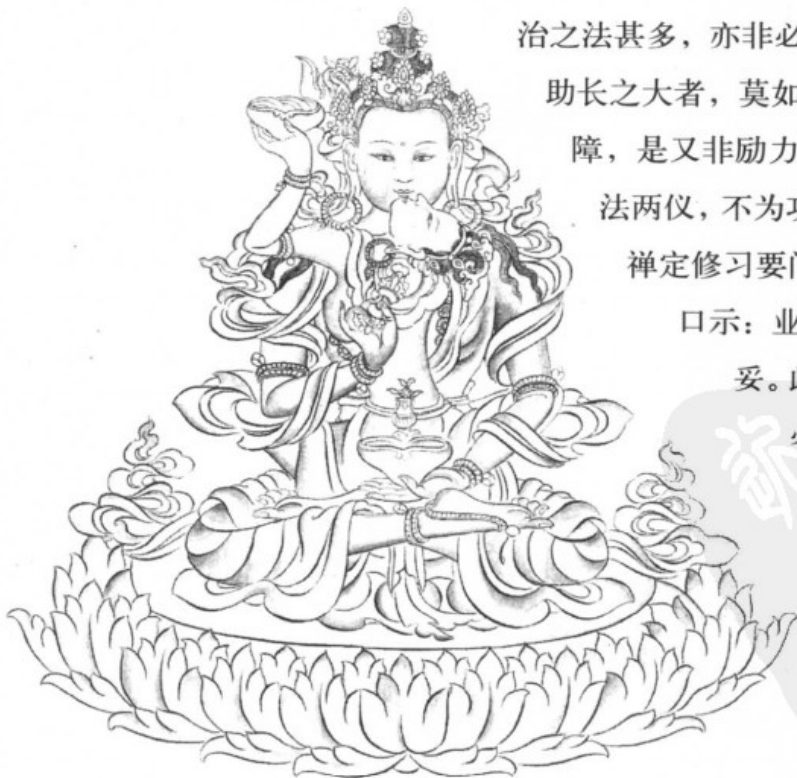 治之法甚多，亦非必
助长之大者，莫如
障，是又非励力
法两仪，不为
禅定修习要
口示：业
妥。